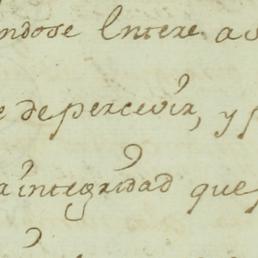 ndose Entere a
e de percevir, y
a integridad que